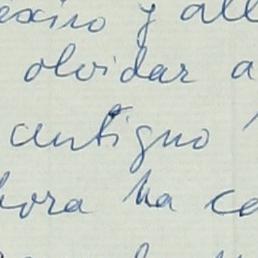 y all
olvidar a
antiguo
hora ha co